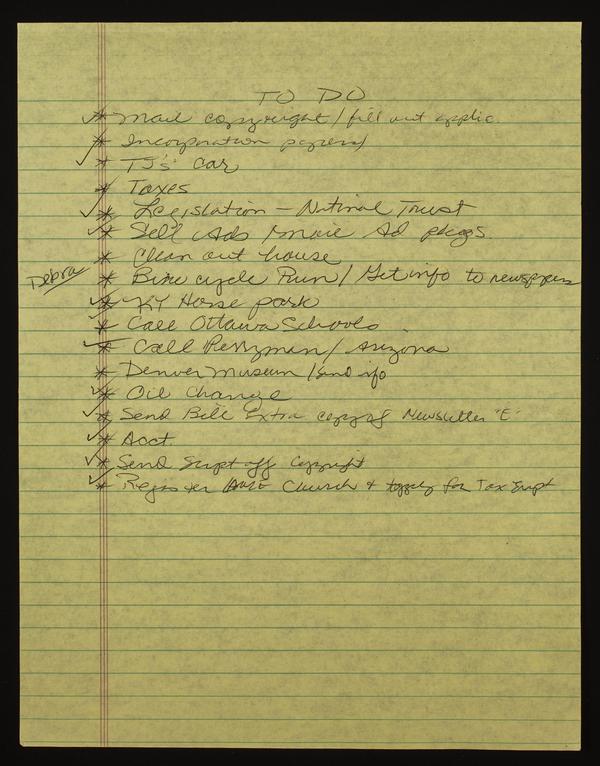 TO DO
* Mail copywright / fill out applic
* Incorporation papers
* TJ's car
* Taxes
* Legislation - National Trust
* Sell Ads / mail Ad pkgs
* Clean out house
Debra * Bike cycle Run / Get info to newspapers
* KY Horse park
* Call Ottawa Schools
* Call Perryman / Arizona
* Denver Museum / send info
* Oil Change
* Send Bill Extra copy of Newsletter "E"
* Acct.
* Send Script off Copyright
* Register Church + apply for Tax Exempt